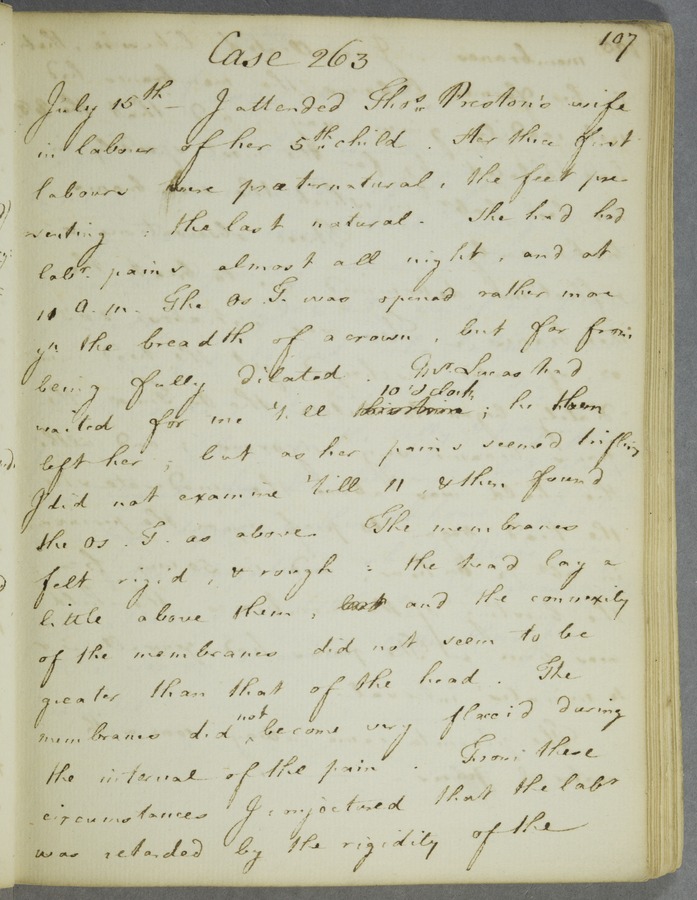 107
Case 263
July 15th - I attended Thos. Preston's wife
in labour of her 5th child. Her three first
labours were præternatural, the feet pre-
senting : the last natural. She had had
labr. pains almost all night, and at
11 a.m. The Os. T. was opened rather more
yn the breadth of a crown, but far from
being fully dilated. Mr. Lucas had
waited for me 'till 10 o'clock ; he then
left her ; but as her pains seemed trifling
I did not examine 'till 11, & then found
the Os. T. as above. The membranes
felt rigid, & rough : the head lay a
little above them, and the convexity
of the membranes did not seem to be
greater than that of the head. The
membranes did not become very flaccid during
the interval of the pain. From these
circumstances I conjectured that the labr
was retarded by the rigidity of the